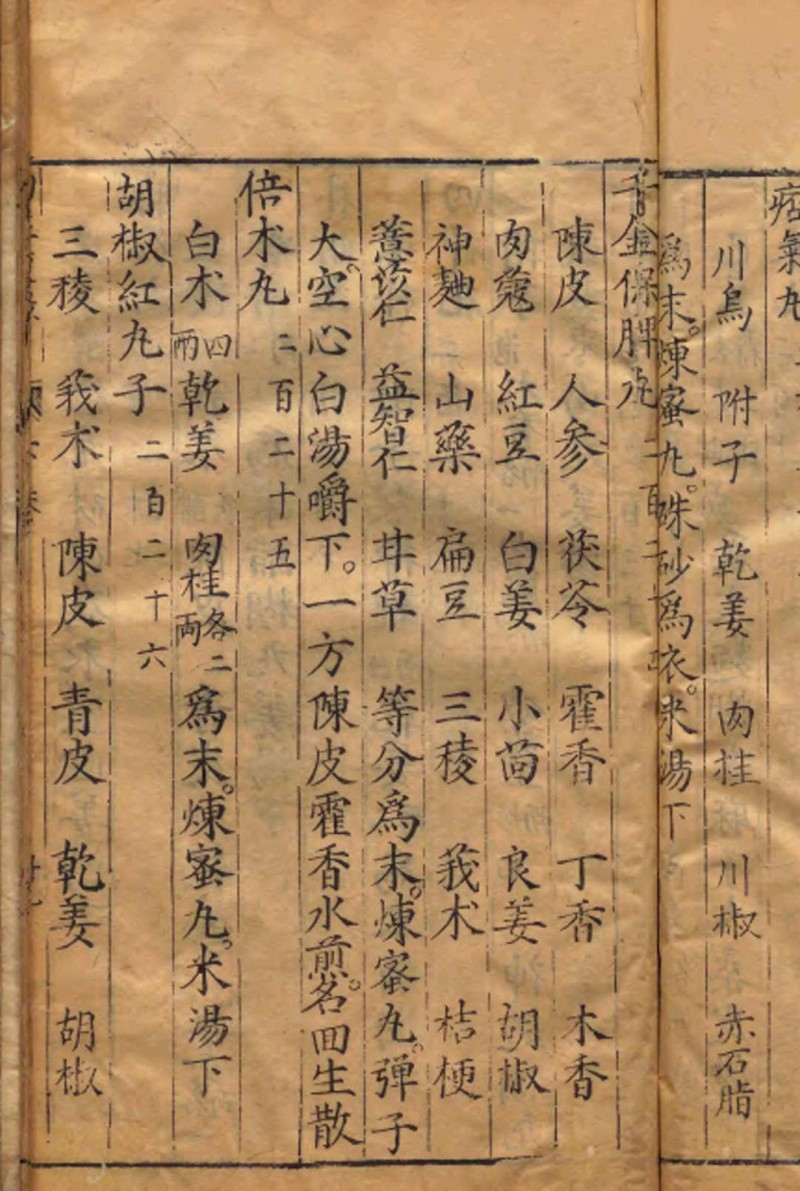 痃氣丸
川烏 附子 乾姜 肉桂 川椒 赤石脂
爲末。煉蜜丸。硃砂爲衣。米湯下
千金保脾丸 二百二十
陳皮 人參 茯苓 霍香 丁香 木香
肉蔻 紅豆 白姜 小茴 良姜 胡椒
神麯 山藥 扁豆 三稜 莪朮 桔梗
薏苡仁 益智仁 甘草 等分爲末。煉蜜丸。彈子
大。空心白湯嚼下。一方陳皮霍香水煎。名囬生散
倍朮丸 二百二十五
白朮四兩 乾姜 肉桂各二兩 爲末。煉蜜丸。米湯下
胡椒紅丸子 二百二十六
三稜 莪朮 陳皮 青皮 乾姜 胡椒